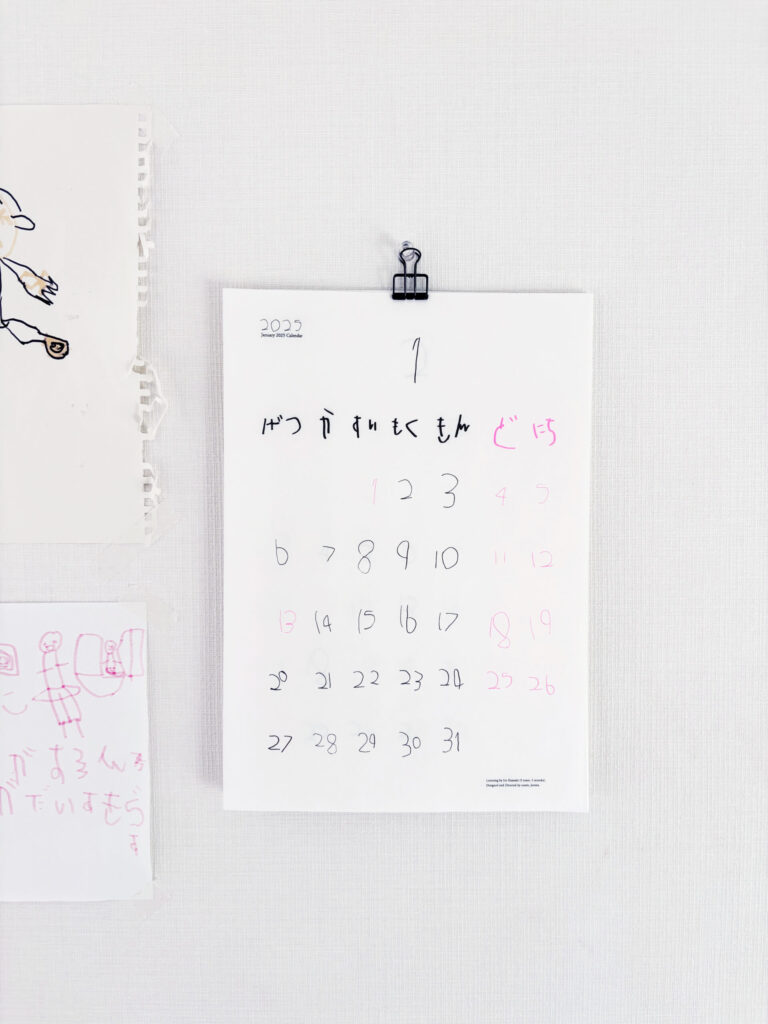 2025
January 2025 Calendar
1
げつ か すい もく もん ど にち
1 2 3 4 5
6 7 8 9 10 11 12
13 14 15 16 17 18 19
20 21 22 23 24 25 26
27 28 29 30 31
Designed and Directed by